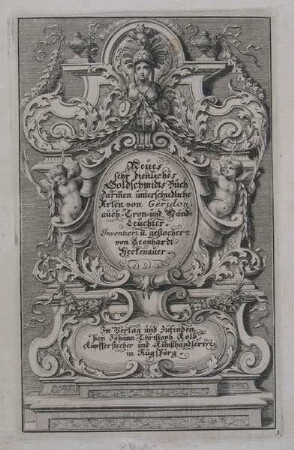 Neues
sehr dienliches
Goldschmidts Buch
Darinen unterschidliche
Arten von Geridon
auch Cron-und Wand
Leuchter.
Inventiert u. gestochen
von Leonhardt
Heckenauer.
In Verlag und Zufinden
bey Johann Christoph Kolb
Kupfferstecher und Kunsthandlerin
in Augspurg